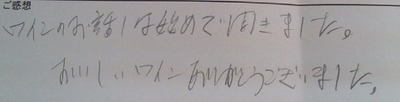 ご感想
ワインのお話しは始めて聞きました。
おいしいワインありがとうございました。